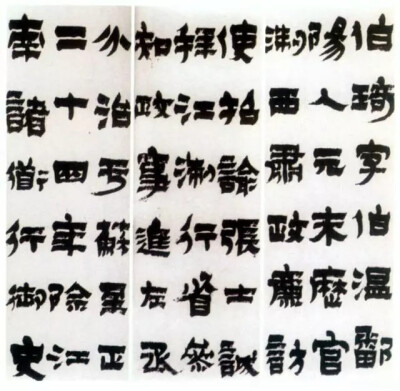 伯琦字伯温鄱
陽人元末歷官
淛西肅政廉訪
使招諭張士誠
拜江淛行省叅
知政事進左丞
分治亏蘇至正
二十四年除江
南諸衜行御史